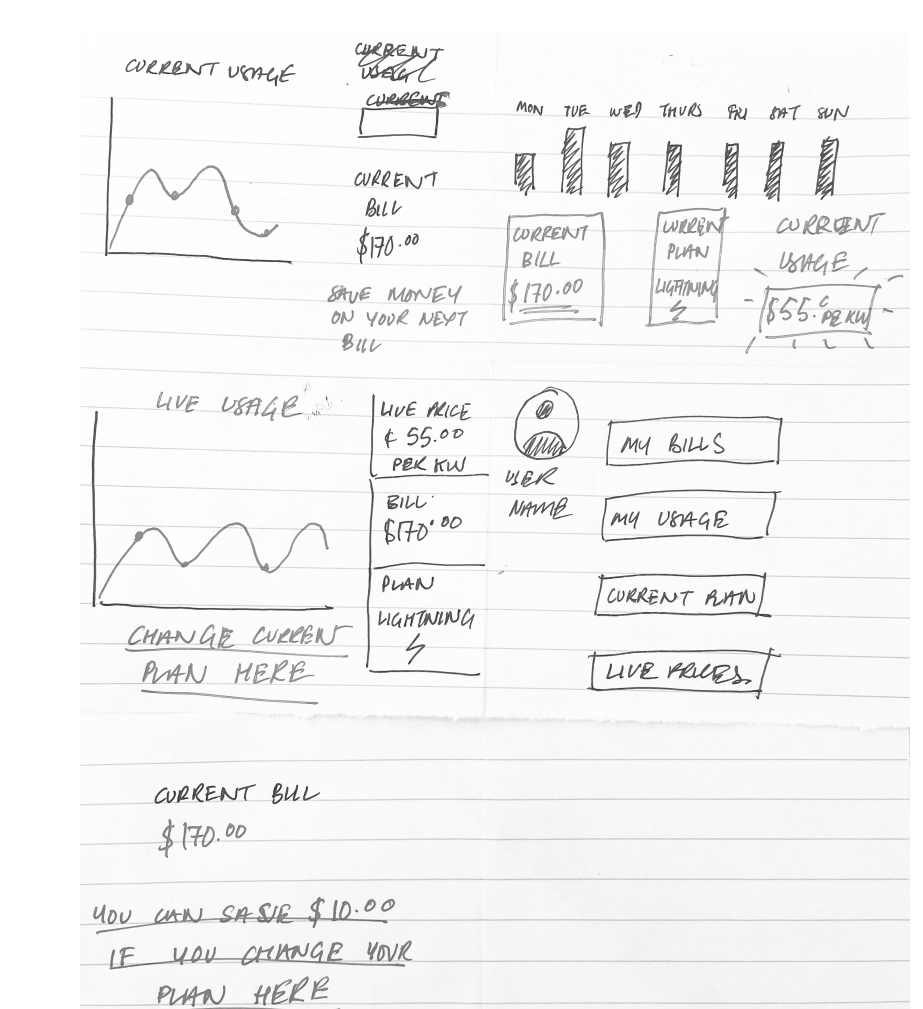 CURRENT USAGE
CURRENT
USAGE
CURRENT
CURRENT
BILL
$170.00
SAVE MONEY
ON YOUR NEXT
BILL
MON TUE WED THURS FRI SAT SUN
CURRENT
BILL
$170.00
CURRENT
PLAN
LIGHTNING
CURRENT
USAGE
$55.c PER KW
LIVE USAGE
CHANGE CURRENT
PLAN HERE
LIVE PRICE
¢ 55.00
PER KW
BILL
$170.00
PLAN
LIGHTNING
USER
NAME
MY BILLS
MY USAGE
CURRENT PLAN
LIVE PRICES
CURRENT BILL
$170.00
YOU CAN SAVE $10.00
IF YOU CHANGE YOUR
PLAN HERE